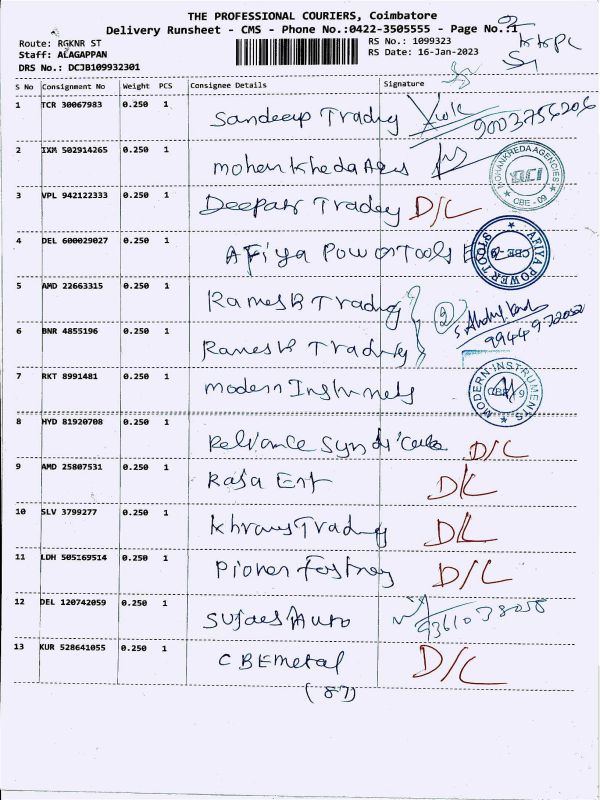 THE PROFESSIONAL COURIERS, Coimbatore
Delivery Runsheet - CMS - Phone No.:0422-3505555 - Page No.:1
Route: RGKNR ST
RS No.: 1099323
Staff: ALAGAPPAN
RS Date: 16-Jan-2023
DRS No.: DCJB109932301
S No Consignment No Weight PCS Consignee Details Signature
1 TCR 30067983 0.250 1 Sandeep Trading 9003756206
2 IXM 502914265 0.250 1 mohankheda Agens
MOHANKHEDA AGENCIES CBE - 09
3 VPL 942122333 0.250 1 Deepak Trading D/C
4 DEL 600029027 0.250 1 AFiya Power Tools
AFIYA POWER TOOLS CBE
5 AMD 22663315 0.250 1 Ramesh Trading 2
6 BNR 4855196 0.250 1 Ramesh Trading
7 RKT 8991481 0.250 1 modern Instruments
MODERN INSTRUMENTS CBE 9
8 HYD 81920708 0.250 1 Reliance Syndicate D/C
9 AMD 25807531 0.250 1 Raja Ent D/C
10 SLV 3799277 0.250 1 Trading D/C
11 LDH 505169514 0.250 1 D/C
12 DEL 120742059 0.250 1 Auto
13 KUR 528641055 0.250 1 CBE metal D/C
(87)